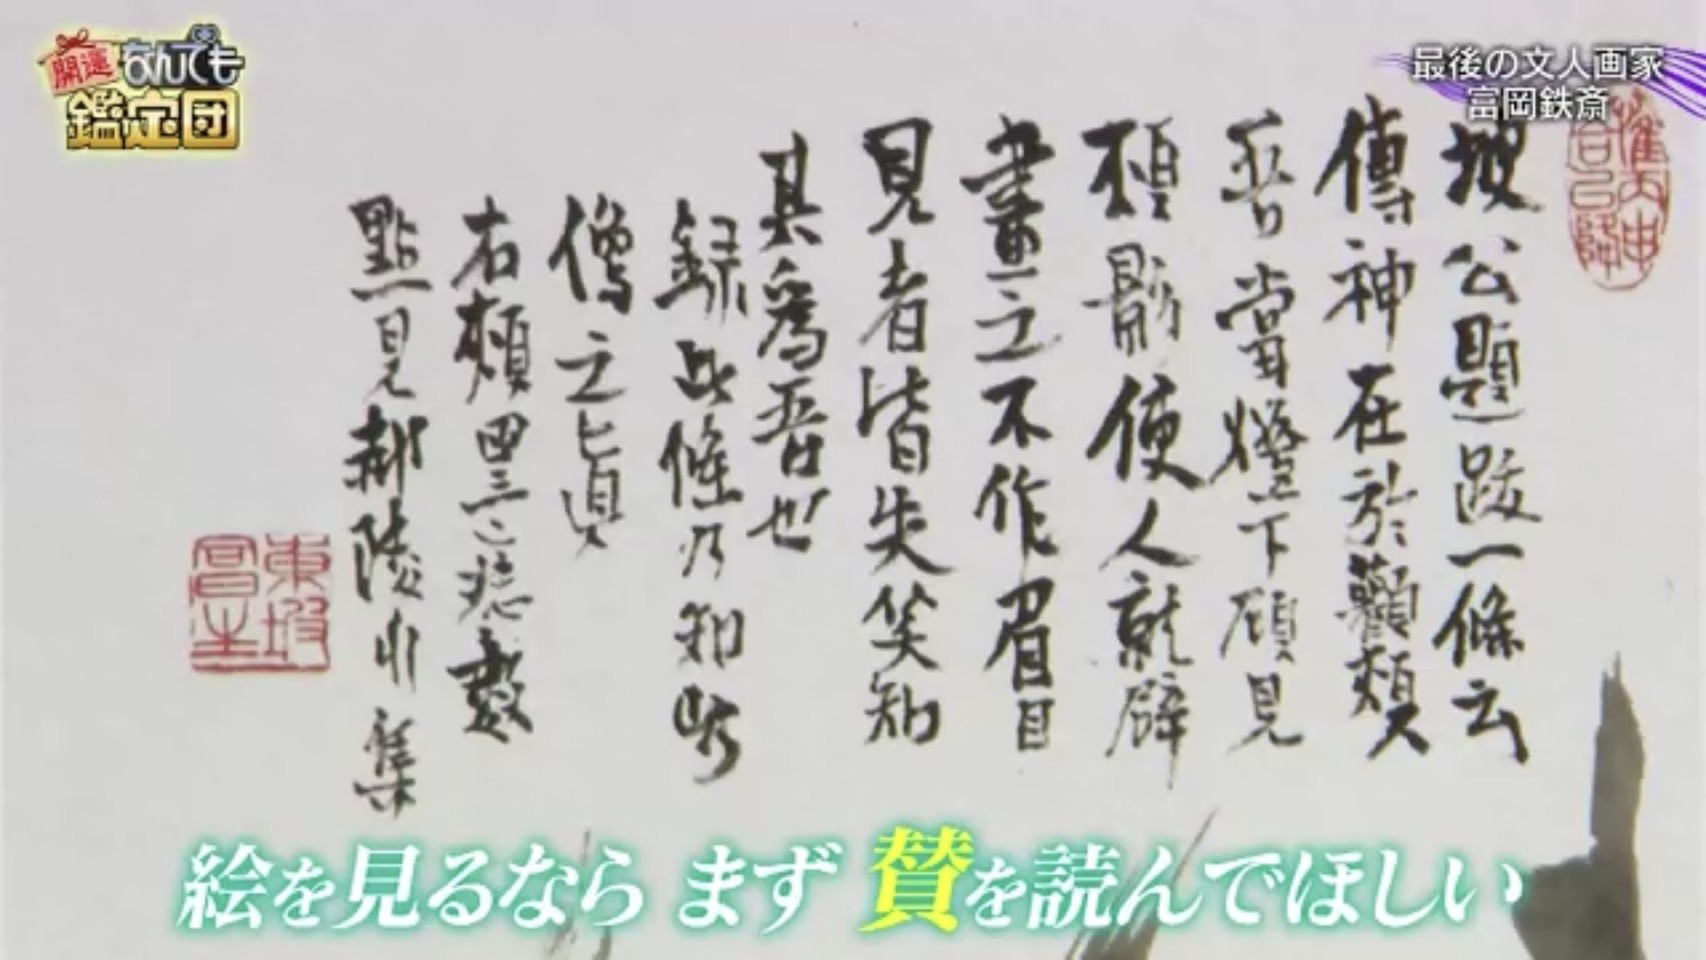 開運なんでも鑑定団
最後の文人画家
富岡鉄斎
坡公題跋一條云
傳神在於顴頬
吾嘗燈下顧見
頰影使人就壁
畫之不作眉目
見者皆失笑知
其爲吾也
録此條乃知此
僧之眞
右頬 痣數
點見郝陵川集
東坡
絵を見るなら まず 賛を読んでほしい